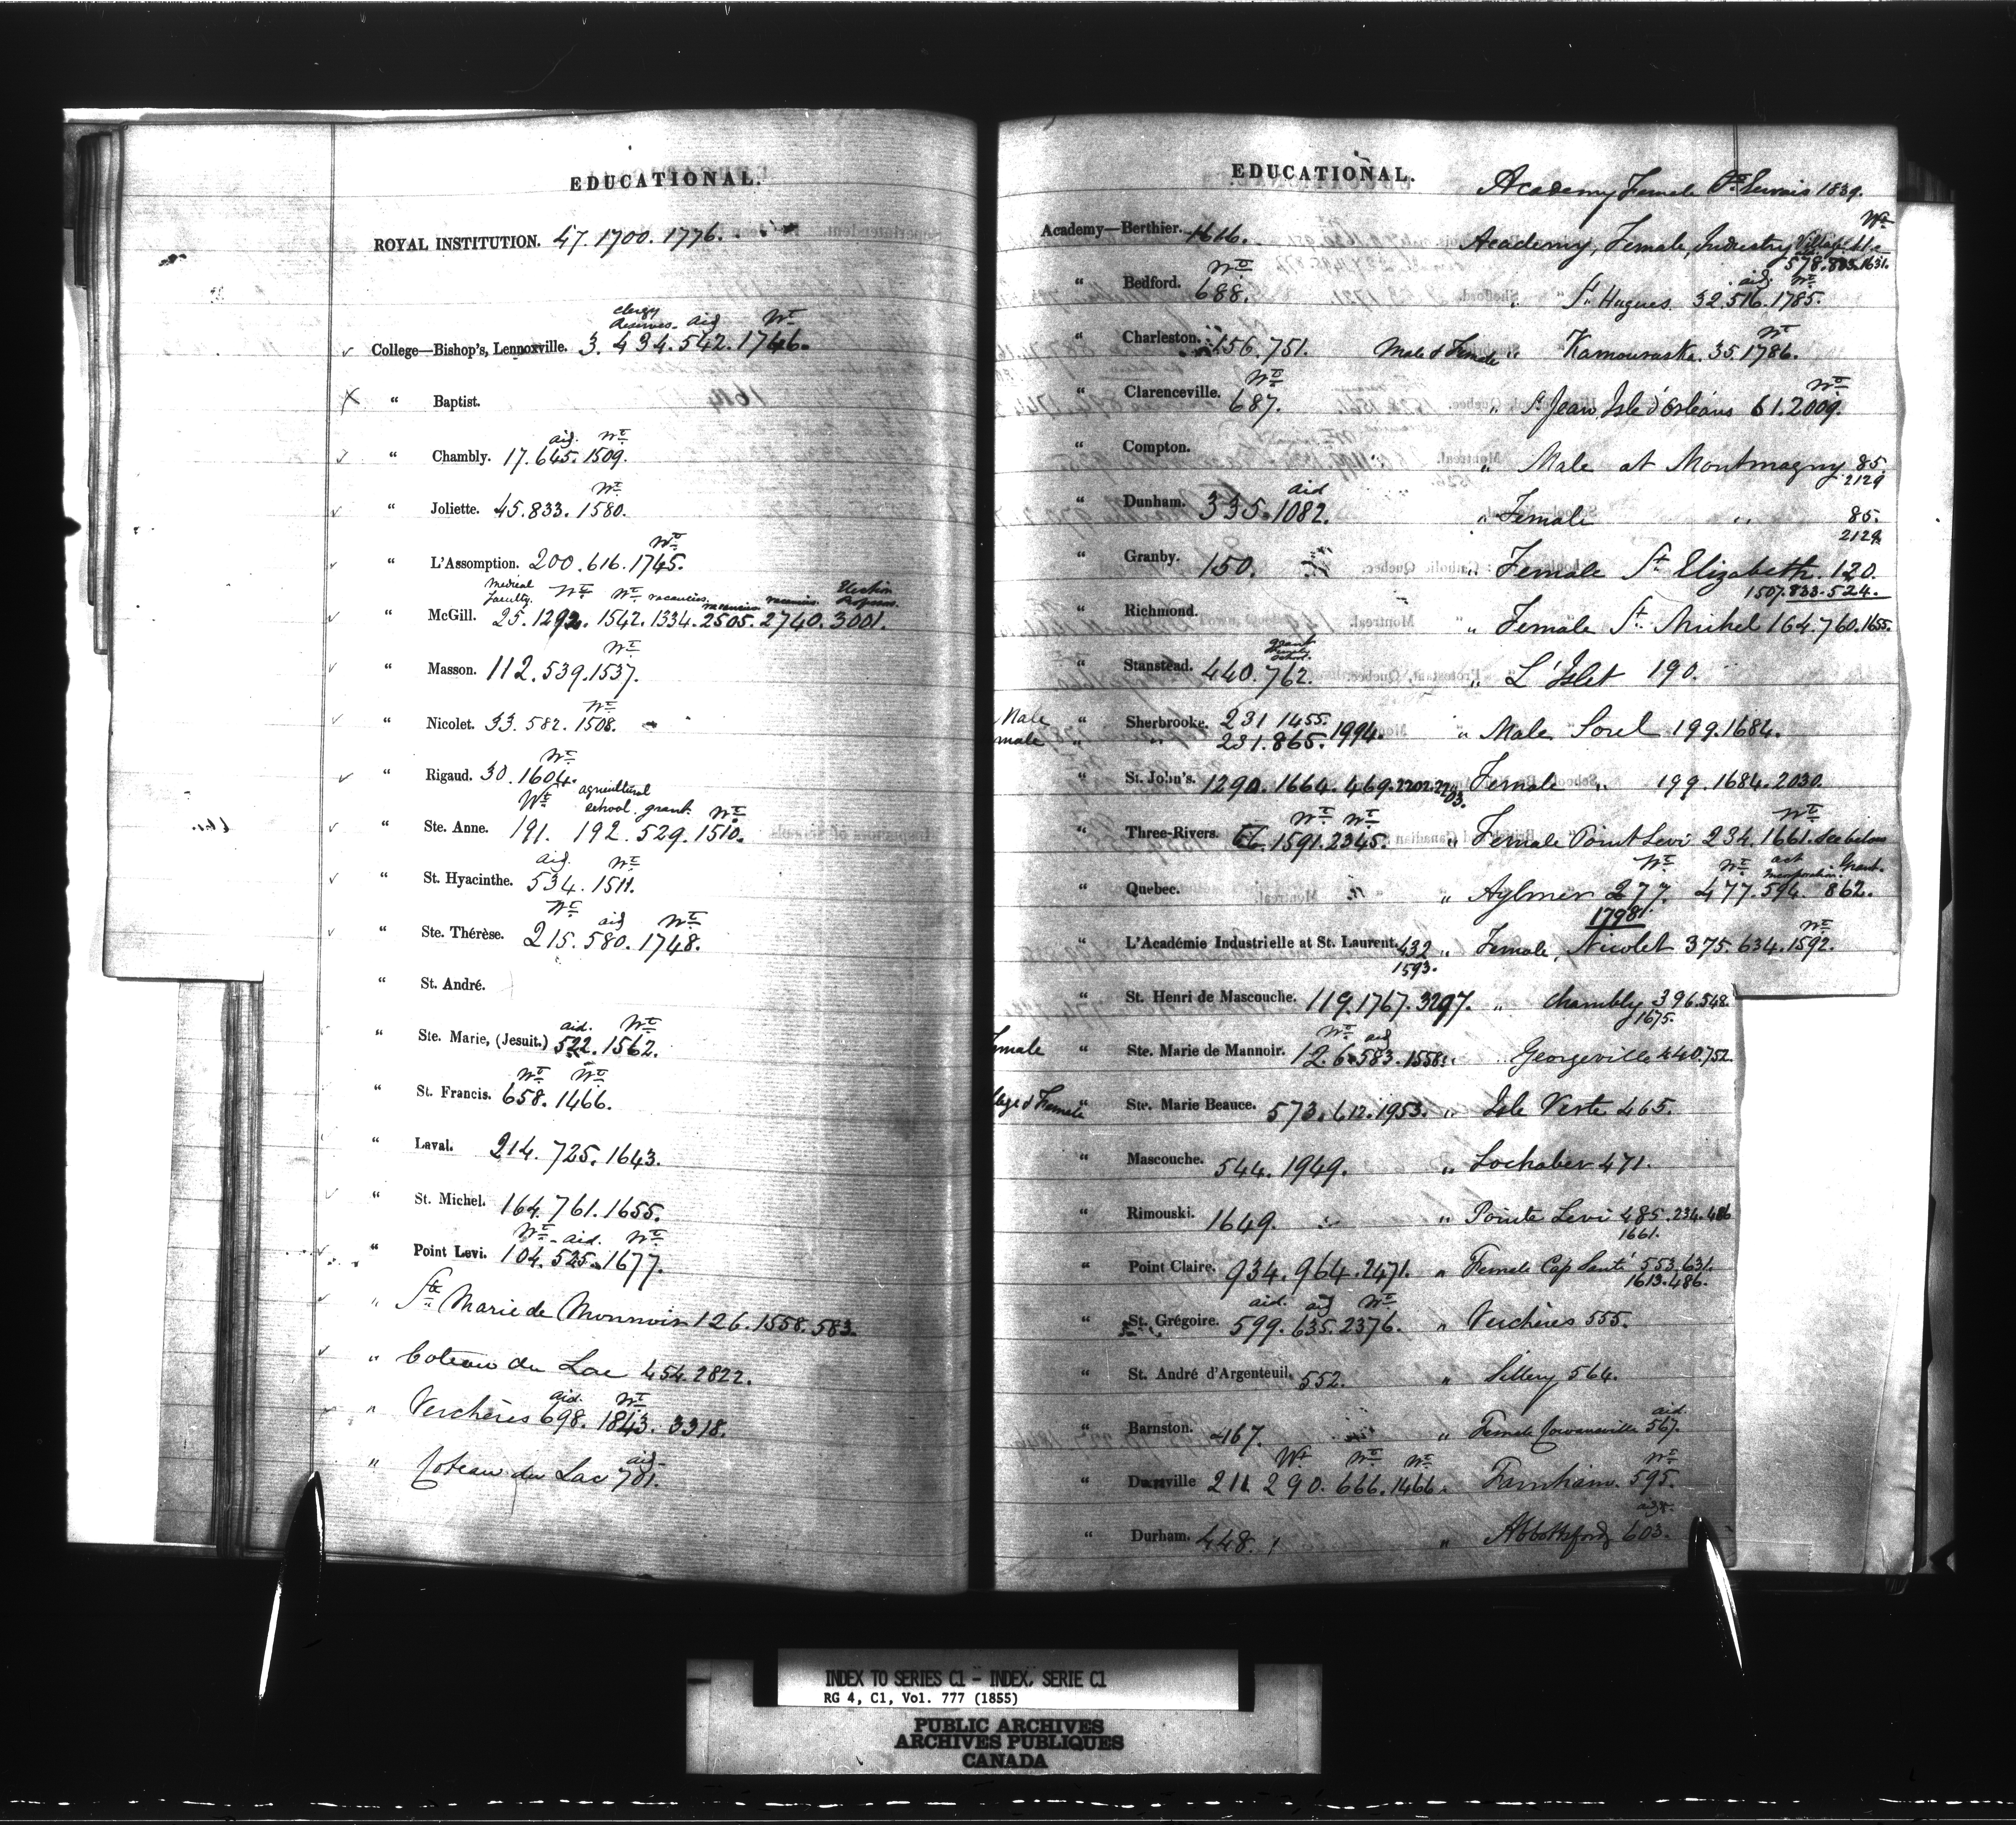 EDUCATIONAL.
ROYAL INSTITUTION. 47. 1700. 1776.
Clergy
Reserves. aid Wt
College—Bishop's, Lennoxville. 3. 434. 542. 1746.
" Baptist.
aid. Wt
" Chambly. 17. 645. 1509.
Wt
" Joliette. 45. 833. 1580.
Wt
" L'Assomption. 200. 616. 1745.
Medical Faculty. Wt Wt vacancies. vacancies vacancies. Election Professor.
" McGill. 25. 1292. 1542. 1334. 2505. 2740. 3001.
Wt
" Masson. 112. 539. 1537.
Wt
" Nicolet. 33. 582. 1508.
Wt
" Rigaud. 30. 1604.
Wt agricultural school. grant. Wt
" Ste. Anne. 191. 192. 529. 1510.
aid Wt
" St. Hyacinthe. 534. 1511.
Wt aid Wt
" Ste. Thérèse. 215. 580. 1748.
" St. André.
aid. Wt
" Ste. Marie, (Jesuit.) 522. 1562.
Wt Wt
" St. Francis. 658. 1466.
" Laval. 214. 725. 1643.
" St. Michel. 164. 761. 1655.
Wt aid. Wt
" Point Levi. 104. 525. 1677.
" Ste Marie de Monnoir 126. 1558. 583.
" Coteau du Lac 454. 2822.
aid. Wt
" Verchères 698. 1843. 3318.
aid
" Coteau du Lac 701.
EDUCATIONAL.
Academy—Berthier. 1616.
Wt
" Bedford. 688.
" Charleston. 156. 751.
Wt
" Clarenceville. 687.
" Compton.
aid
" Dunham. 335. 1082.
" Granby. 150.
" Richmond.
grant
" Stanstead. 440. 762.
Male " Sherbrooke. 231 1455.
male " " 231. 865. 1994.
" St. John's. 1290. 1664. 469. 2202. 2203.
Wt Wt
" Three-Rivers. 66. 1591. 2345.
" Quebec.
" L'Académie Industrielle at St. Laurent. 432
1593.
" St. Henri de Mascouche. 119. 1767. 3297.
Wt aid
emale " Ste. Marie de Mannoir. 126. 583. 1558.
llege & Female " Ste. Marie Beauce. 573. 612. 1953.
" Mascouche. 544. 1949.
" Rimouski. 1649.
" Point Claire. 934. 964. 2471.
aid. aid Wt
" St. Grégoire. 599. 635. 2376.
" St. André d'Argenteuil. 552.
" Barnston. 467.
Wt Wt Wt
" Danville 211 290. 666. 1466.
" Durham. 448.
Academy Female St Gervais 1839.
Wt
Academy, Female, Industry Village 41.
578. 883. 1631.
aid. Wt
" St Hugues 32. 516. 1785.
Wt
Male & Female " Kamouraska. 35. 1786.
Wt
" St Jean, Isle d'Orléans 61. 2009.
" Male at Montmagny 85.
2129
" Female " 85.
2129
" Female St Elizabeth. 120.
1507. 833. 524.
" Female St Michel 164. 760. 1655.
" L'Islet 190.
" Male Sorel 199. 1684.
" Female " 199. 1684. 2030.
Wt
" Female Point Levi 234. 1661. See below
Wt Wt act incorporation. Grant.
" Aylmer 277. 477. 594. 862.
1798.
Wt
" Female, Nicolet 375. 634. 1592.
" Chambly 396. 548.
1675.
" Georgeville 440. 752
" Isle Verte 465.
" Lochaber 471.
" Pointe Levi 485. 234. 486
1661.
" Female Cap Santé 553. 631.
1613. 486.
" Verchères 555.
" Sillery 564.
aid.
" Female Cowansville 567.
Wt
" Farnham. 595.
aid
" Abbottsford 603.
INDEX TO SERIES C1 - INDEX, SERIE C1
RG 4, C1, Vol. 777 (1855)
PUBLIC ARCHIVES
ARCHIVES PUBLIQUES
CANADA